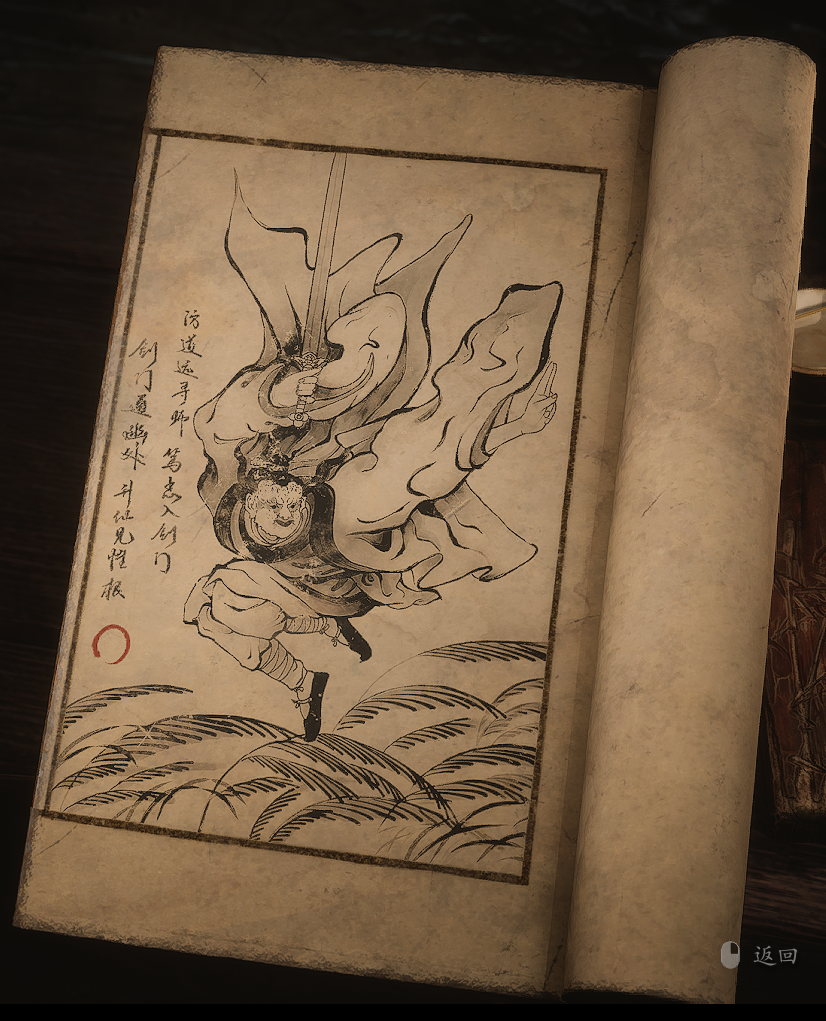 访道远寻师
笃志入剑门
剑门道幽外
升仙见性根
返回